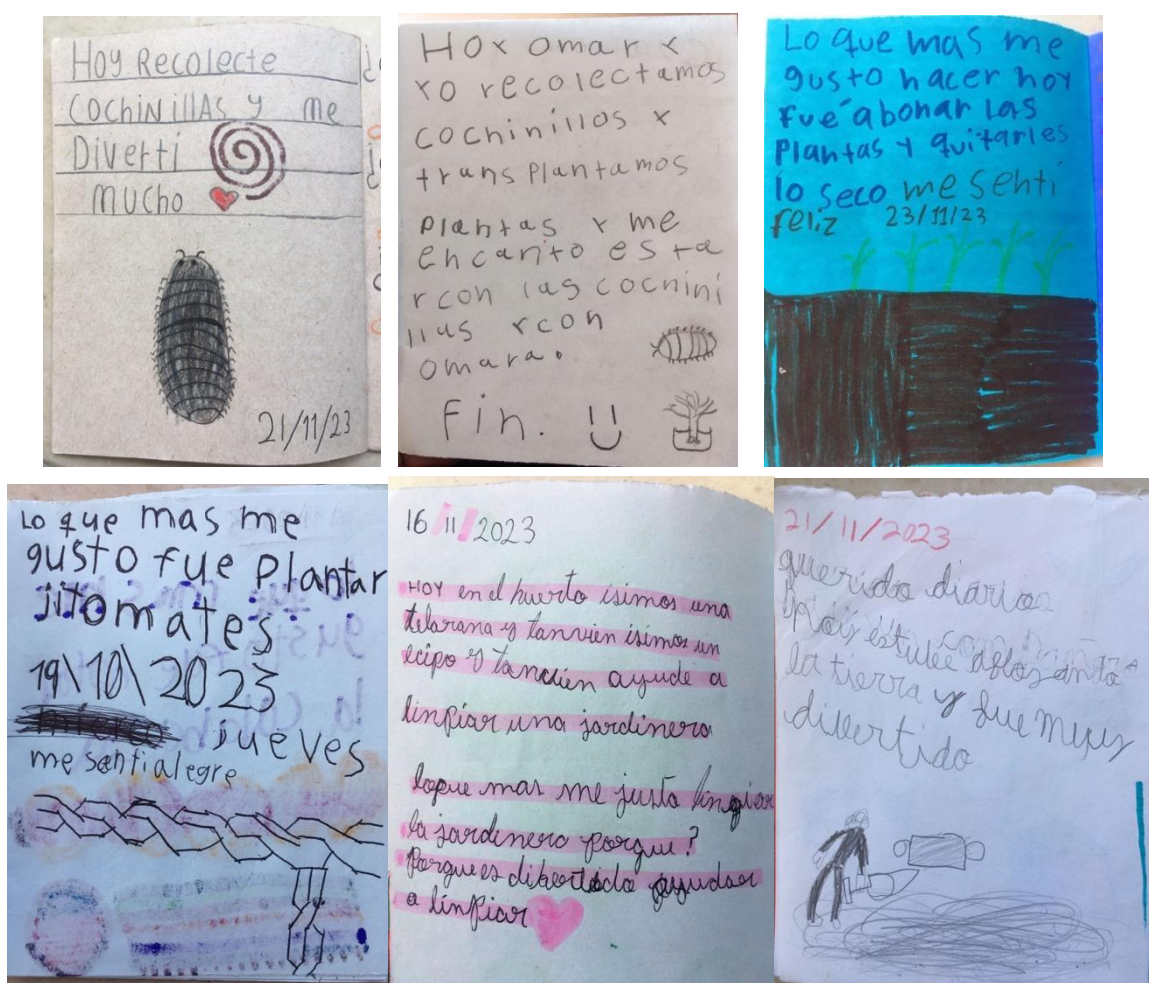 Hoy Recolecte
cochinillas y me
Diverti
mucho
21/11/23
Hoy omar y
yo recolectamos
cochinillos y
transplantamos
plantas y me
encanto esta
r con las cochini
llas y con
omara.
Fin.
Lo que mas me
gusto hacer hoy
fue abonar las
plantas y quitarles
lo seco me senti
feliz 23/11/23
Lo que mas me
gusto fue plantar
jitomates
19\10\2023
jueves
me senti alegre
16/11/2023
HOY en el huerto isimos una
telarana y tanvien isimos un
ecipo y tancien ayude a
linpiar una jardinera
loque mas me justo linpiar
la jardinera porque?
Porque es dibertido ayudar
a linpiar
21/11/2023
querido diario
Hoy estube aflojando
la tierra y fue muy
divertido